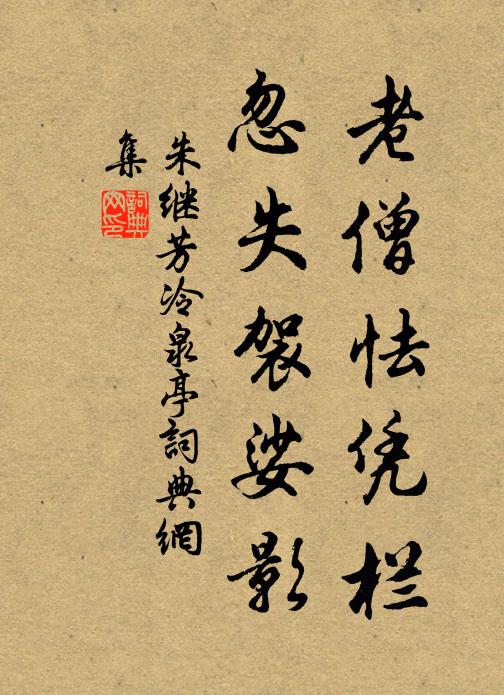 老僧怯凭栏
忽失袈娑影
朱继芳冷泉亭詞典網
集
詞典网印